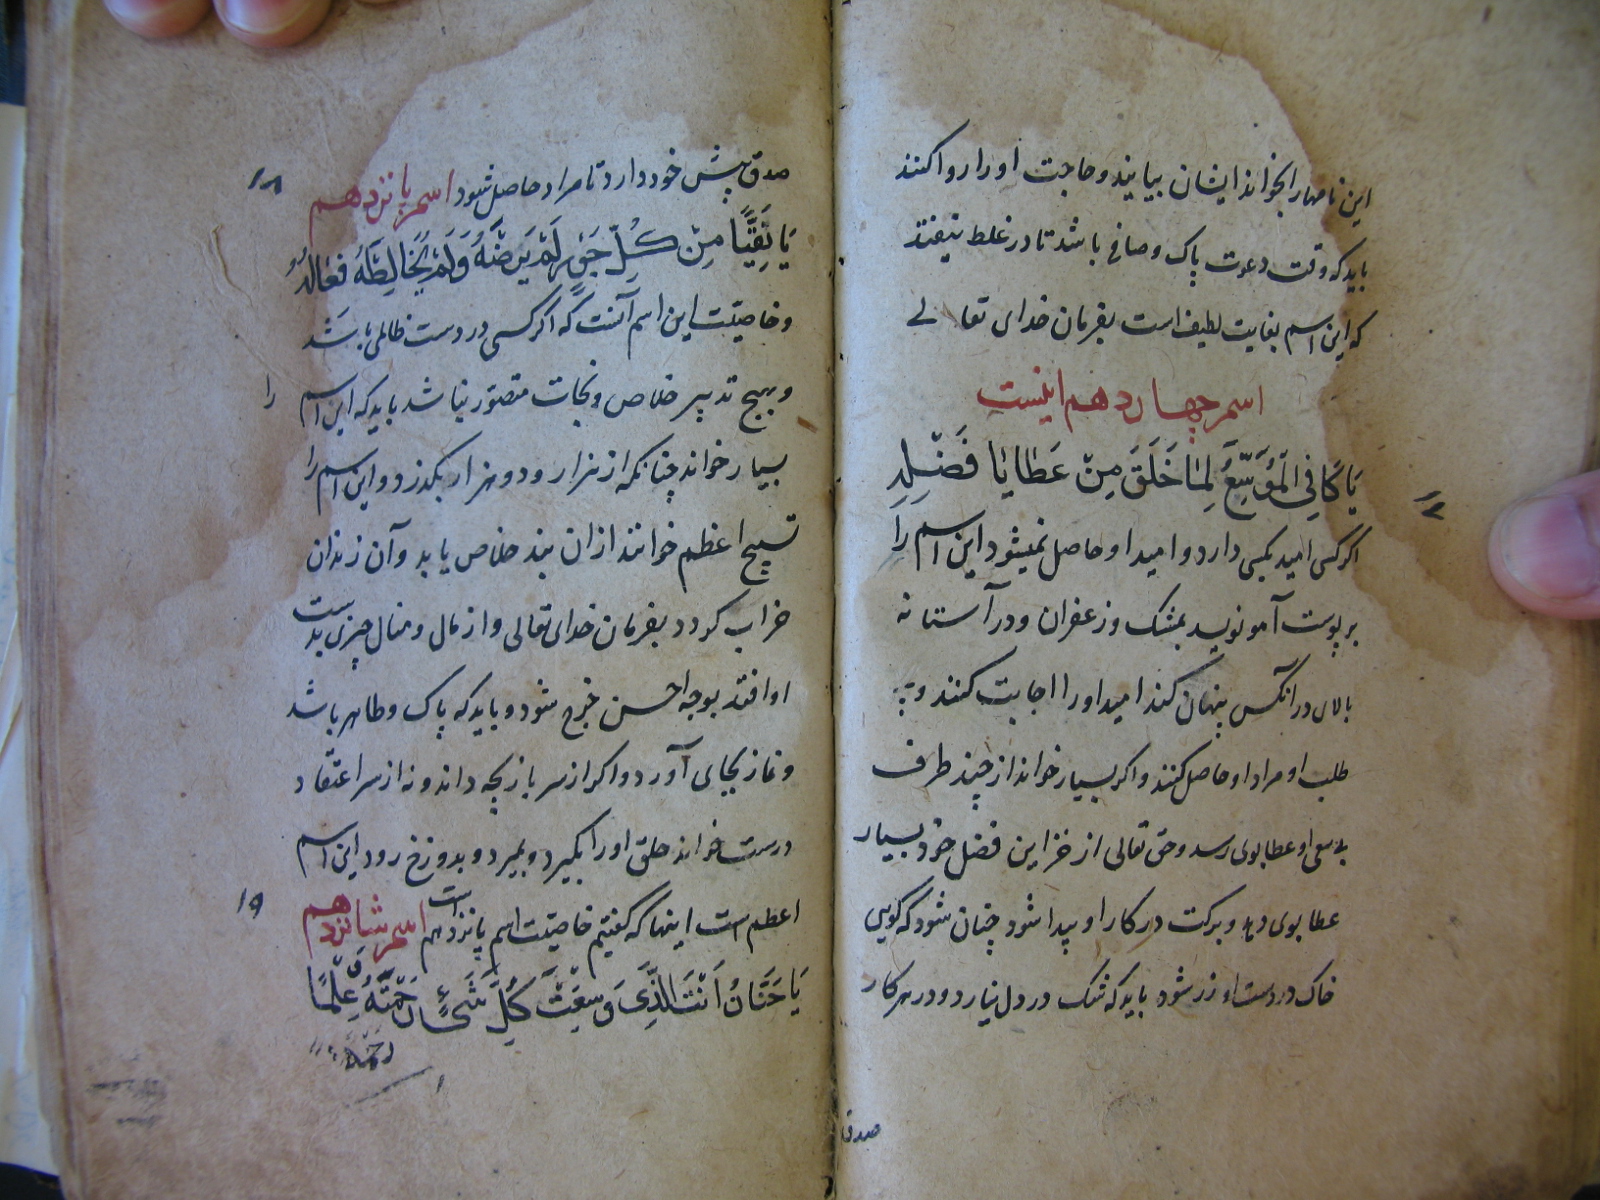 این نامهارا بخواند ایشان بیایند و حاجت او را روا کنند
باید که وقت دعوت پاک و صافی باشد تا در غلط نیفتد
که این اسم بغایت لطیف است بفرمان خدای تعالی
اسم چهاردهم اینست
یَا کَافِی الْمُوَسِّعُ لِمَا خَلَقَ مِنْ عَطَایَا فَضْلِهِ
۱۷
اگر کسی امید بکسی دارد و امید او حاصل نمیشود این اسم را
بر پوست آهو نویسد بمشک و زعفران و در آستانه
بالای در آنکس پنهان کند امید او را اجابت کنند و بی
طلب او مراد او حاصل کنند و اگر بسیار خواند از چند طرف
بی سعی او عطا بوی رسد و حق تعالی از خزاین فضل خود بسیار
عطا بوی دهد و برکت در کار او پیدا شود چنان شود که گویی
خاک در دست او زر شود باید که شک در دل نیارد و در هر کار
صدق
صدق پیش خود دارد تا مراد حاصل شود اسم پانزدهم
۱۸
یَا نَقِیًّا مِنْ کُلِّ جَوْرٍ لَمْ یَرْضَهُ وَلَمْ یُخَالِطْهُ فِعَالُهُ
و خاصیّت این اسم آنست که اگر کسی در دست ظالمی باشد
و بهیچ تدبیر خلاص و نجات متصوّر نباشد باید که این اسم را
بسیار خواند چنانکه از هزار و دو هزار بگذرد و این اسم را
تسبیح اعظم خوانند از ان بند خلاص یابد و آن زندان
خراب گردد بفرمان خدای تعالی و از مال و منال چیزی بدست
او افتد بوجه احسن خرج شود و باید که پاک و طاهر باشد
و نماز بجای آورد و اگر از سر بازیچه داند و نه از سر اعتقاد
درست خواند حلق او را بگیرد و بمیرد و بدوزخ رود این اسم
اعظم است اینها که گفتیم خاصیّت اسم پانزدهم است اسم شانزدهم
۱۹
یَا حَنَّانُ اَنْتَ الَّذِی وَسِعْتَ کُلَّ شَیْءٍ رَحْمَتُهُ وَ عِلْمًا
رحمة